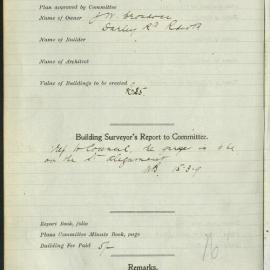 Plan approved by Committee
Name of Owner J. W.
Darley Rd R
Name of Builder
Name of Architect
Value of Buildings to be erected
£25
Building Surveyor's Report to Committee.
Ref to Council, the is
on the St alignment
15-3-9
Report Book, folio
Plans Committee Minute Book, page
Building Fee Paid 5/-
Remarks.